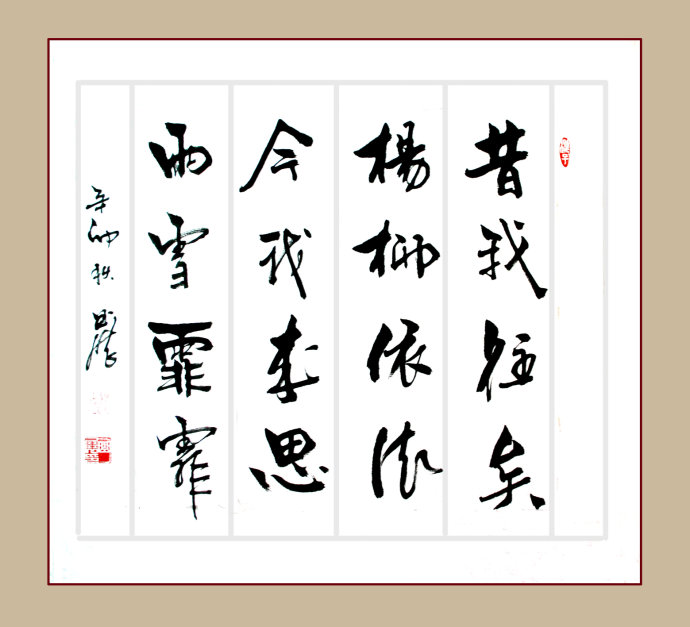 昔我往矣
楊柳依依
今我來思
雨雪霏霏
辛卯秋